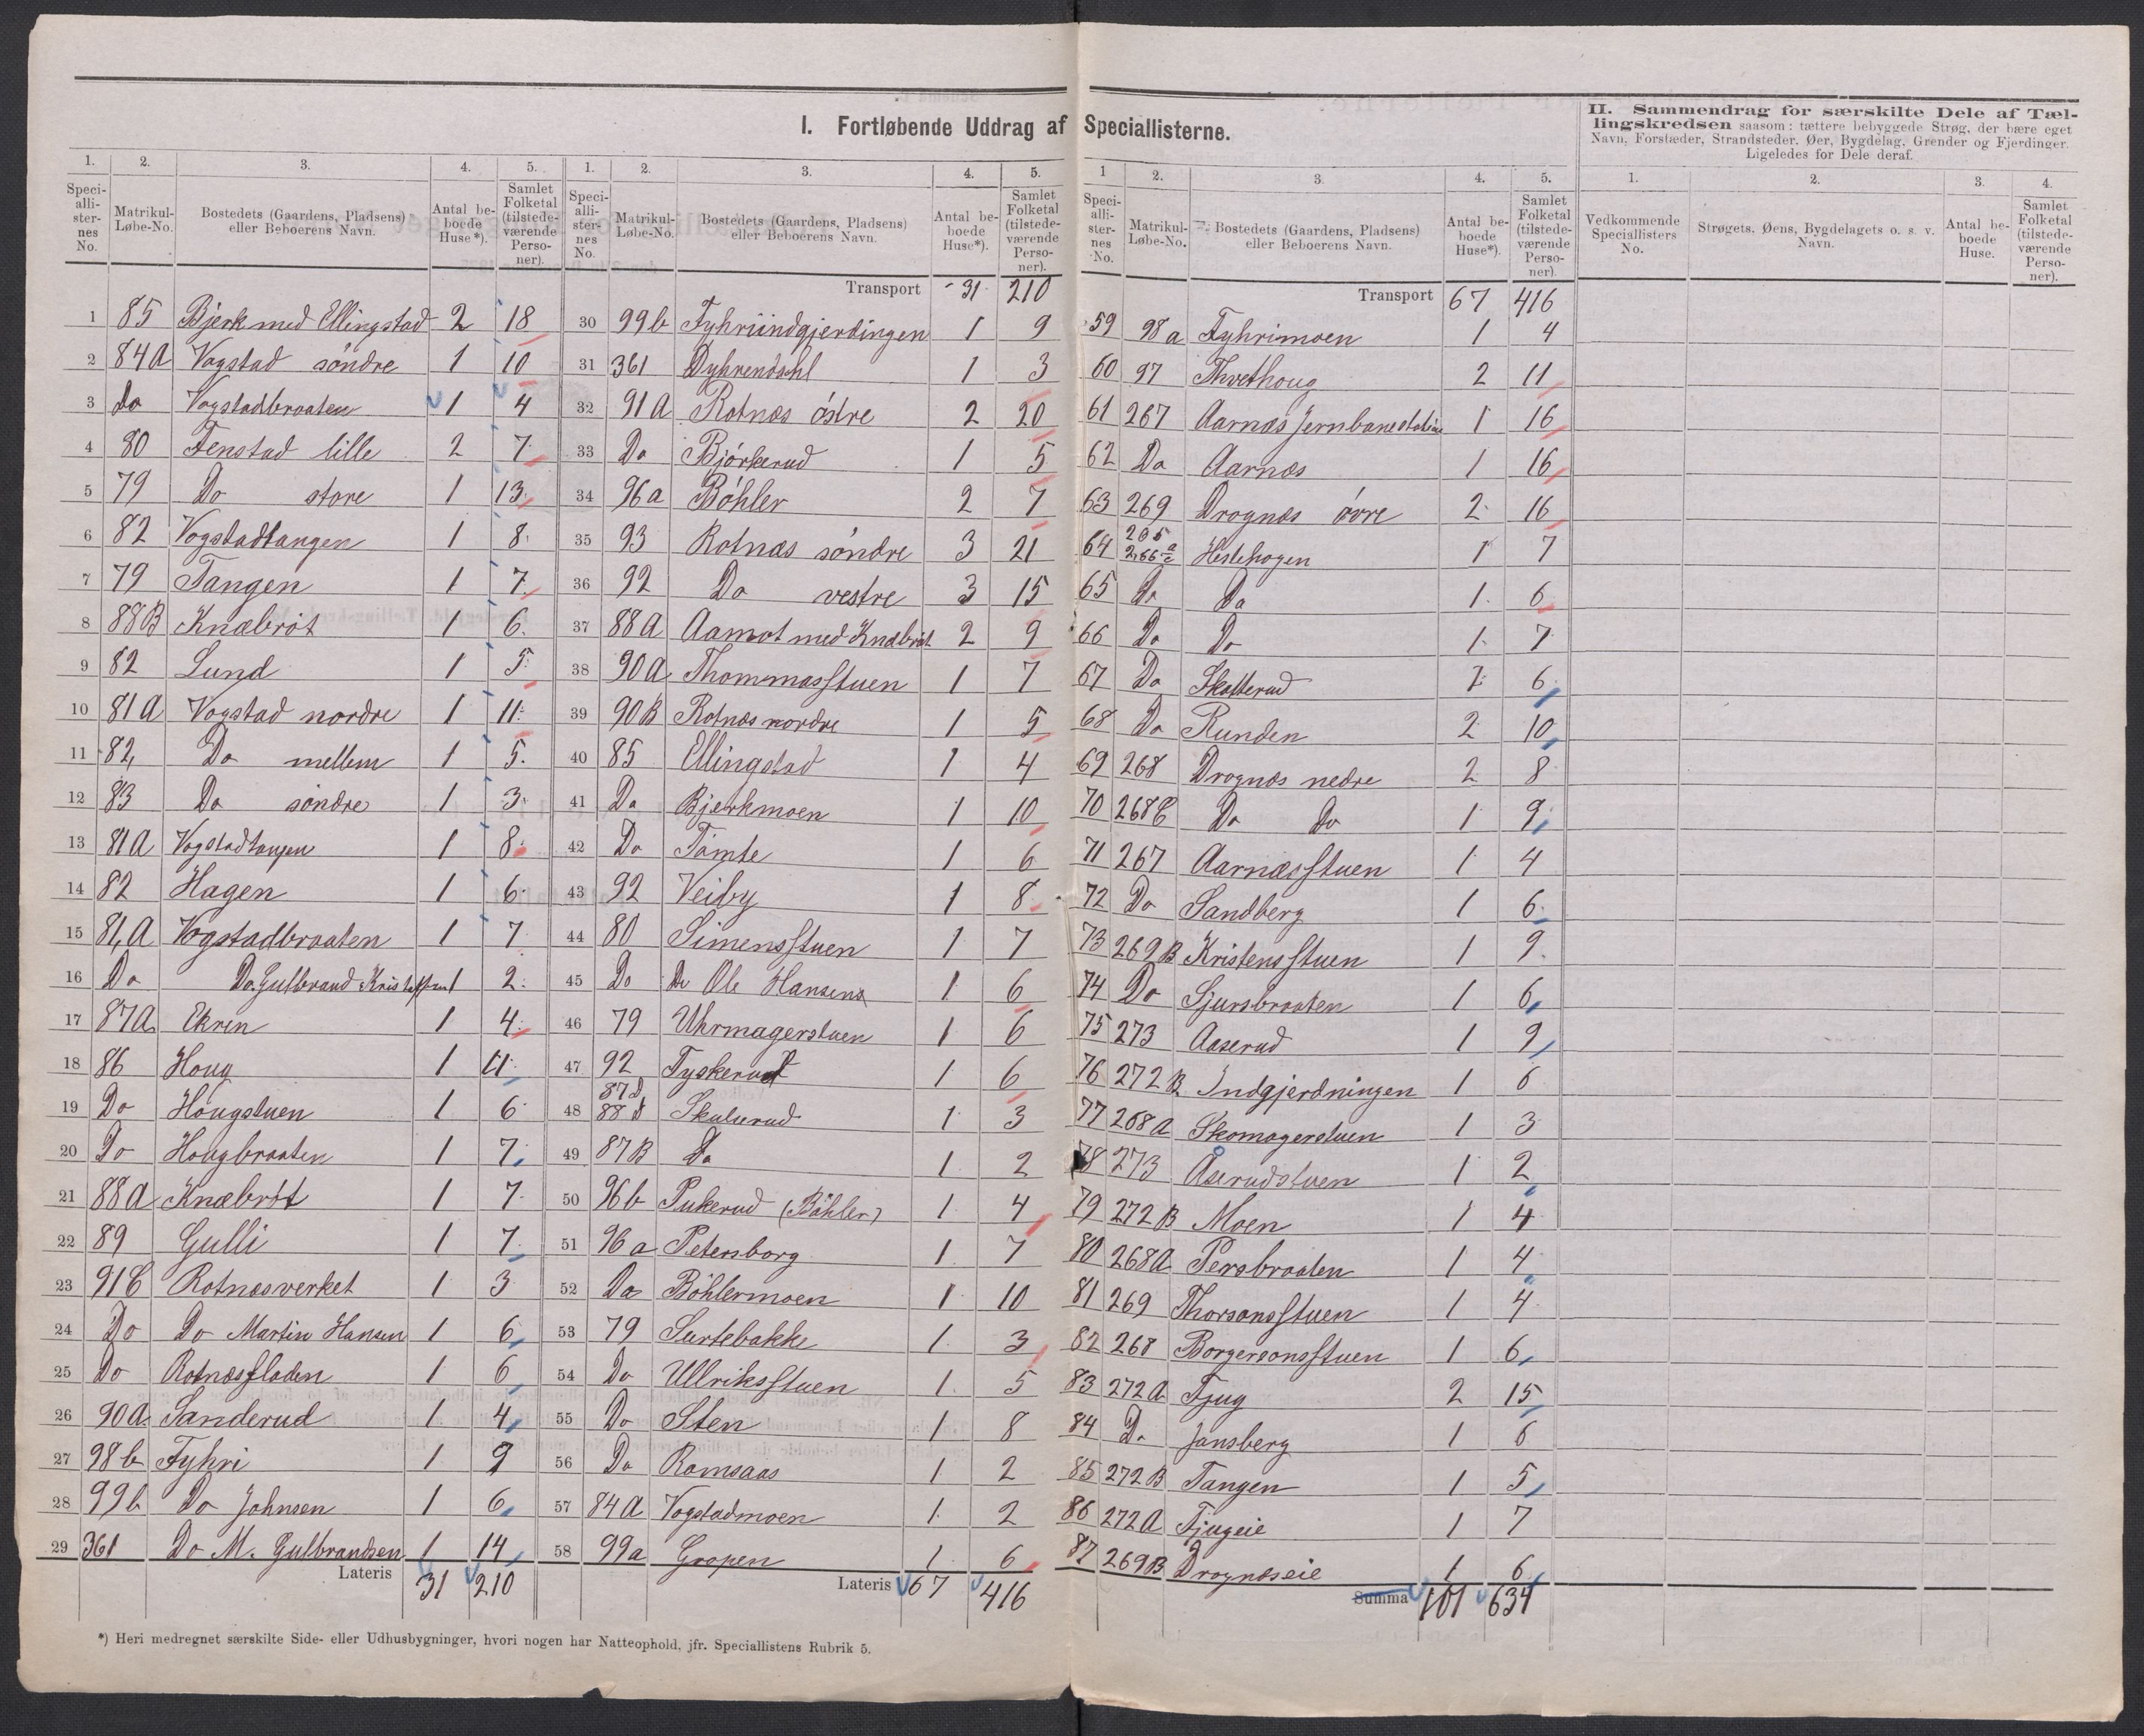 I. Fortløbende Uddrag af Speciallisterne.
1. 2. 3. 4. 5.
Speciallisternes No. Matrikul-Løbe-No. Bostedets (Gaardens, Pladsens) eller Beboerens Navn. Antal beboede Huse*). Samlet Folketal (tilstedeværende Personer).
1 85 Bjerk med Ellingstad 2 18
2 84A Vogstad söndre 1 10
3 Do Vogstadbraaten 1 4
4 80 Fenstad lille 2 7
5 79 Do store 1 13
6 82 Vogstadtangen 1 8
7 79 Tangen 1 7
8 88B Knæbröt 1 6
9 82 Lund 1 5
10 81A Vogstad nordre 1 11
11 82 Do mellem 1 5
12 83 Do söndre 1 3
13 81A Vogstadtangen 1 8
14 82 Hagen 1 6
15 81A Vogstadbraaten 1 7
16 Do Do. Gulbrand Kristoffersen 1 2
17 87A Ekren 1 4
18 86 Houg 1 11
19 Do Hougstuen 1 6
20 Do Hougbraaten 1 7
21 88A Knæbröt 1 7
22 89 Gulli 1 7
23 91C Rotnæsverket 1 3
24 Do Do Martin Hansen 1 6
25 Do Rotnæsfladen 1 6
26 90A Sanderud 1 4
27 98b Fyhri 1 9
28 99b Do Johnsen 1 6
29 361 Do M. Gulbrandsen 1 14
Lateris 31 210
1. 2. 3. 4. 5.
Speciallisternes No. Matrikul-Løbe-No. Bostedets (Gaardens, Pladsens) eller Beboerens Navn. Antal beboede Huse*). Samlet Folketal (tilstedeværende Personer).
Transport 31 210
30 99b Fyhriindgjerdingen 1 9
31 361 Dyhrendahl 1 3
32 91A Rotnæs östre 2 20
33 Do Björkerud 1 5
34 96a Böhler 2 7
35 93 Rotnæs söndre 3 21
36 92 Do vestre 3 15
37 88A Aamot med Knæbröt 2 9
38 90A Thommasstuen 1 7
39 90B Rotnæs nordre 1 5
40 85 Ellingstad 1 4
41 Do Bjerkmoen 1 10
42 Do Tömte 1 6
43 92 Veiby 1 8
44 80 Simensstuen 1 7
45 Do Do Ole Hansens 1 6
46 79 Uhrmagerstuen 1 6
47 92 Tyskerud 1 6
48 87D 88D Skulerud 1 3
49 87B Do 1 2
50 96b Pukerud (Böhler) 1 4
51 96a Petersborg 1 7
52 Do Böhlermoen 1 10
53 79 Surtebakke 1 3
54 Do Ullriksstuen 1 5
55 Do Sten 1 8
56 Do Ramsaas 1 2
57 84A Vogstadmoen 1 2
58 99a Gropen 1 6
Lateris 67 416
1 2. 3. 4. 5.
Speciallisternes No. Matrikul-Løbe-No. Bostedets (Gaardens, Pladsens) eller Beboerens Navn. Antal beboede Huse*). Samlet Folketal (tilstedeværende Personer).
Transport 67 416
59 98a Fyhrimoen 1 4
60 97 Thvethoug 2 11
61 267 Aarnæs Jernbanestation 1 16
62 Do Aarnæs 1 16
63 269 Drognæs övre 2 16
64 265 266 Hestehagen 1 7
65 Do Do 1 6
66 Do Do 1 7
67 Do Skatterud 1 6
68 Do Runden 2 10
69 268 Drognæs nedre 2 8
70 268C Do Do 1 9
71 267 Aarnæsstuen 1 4
72 Do Sandberg 1 6
73 269B Kristensstuen 1 9
74 Do Sjursbraaten 1 6
75 273 Aaserud 1 9
76 272B Indgjerdningen 1 6
77 268A Skomagerstuen 1 3
78 273 Åserudstuen 1 2
79 272B Moen 1 4
80 268A Persbraaten 1 4
81 269 Thorsonsstuen 1 4
82 268 Borgersonsstuen 1 6
83 272A Fjug 2 15
84 Do Jansberg 1 6
85 272B Tangen 1 5
86 272A Fjugeie 1 7
87 269B Drognæseie 1 6
Summa 101 634
II. Sammendrag for særskilte Dele af Tællingskredsen saasom: tættere bebyggede Strøg, der bære eget
Navn, Forstæder, Strandsteder, Øer, Bygdelag, Grender og Fjerdinger.
Ligeledes for Dele deraf.
1. 2. 3. 4.
Vedkommende Speciallisters No. Strøgets, Øens, Bygdelagets o. s. v. Navn. Antal beboede Huse. Samlet Folketal (tilstedeværende Personer).
*) Heri medregnet særskilte Side- eller Udhusbygninger, hvori nogen har Natteophold, jfr. Speciallistens Rubrik 5.